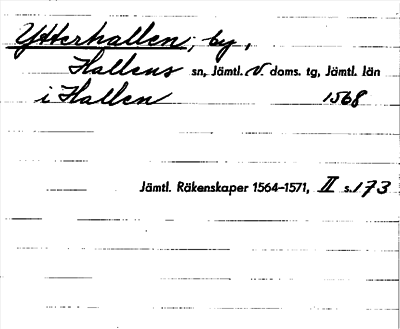 Ytterhallen, by,
Hallens sn, Jämtl. V. doms. tg, Jämtl. län
i Hallen 1568
Jämtl. Räkenskaper 1564–1571, II s.173